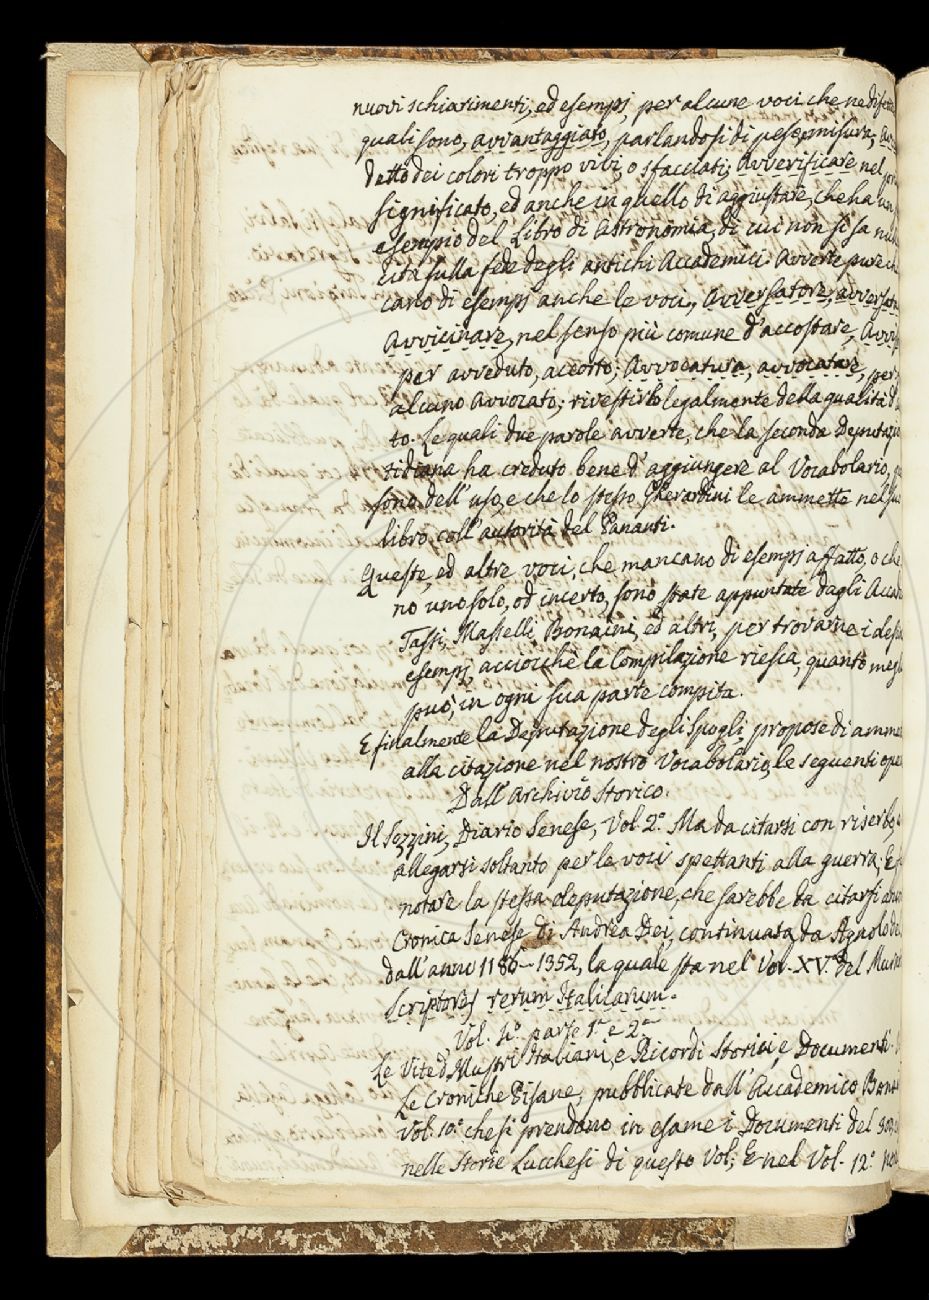 nuovi schiarimenti, ed esempj per alcune voci che ne difett
quali sono, avvantaggiato, parlandosi di peso, e misura;
detto dei colori troppo vivi, o sfacciati; avverificare nel
significato, ed anche in quello di aggiustare, che ha un
esempio del Libro di Astronomia, di cui non si sa
cita sulla fede degli antichi Accademici. Avverte pure ch
cano di esempj anche le voci, Avversatore, avversat
Avvicinare, nel senso più comune d'accostare,
per avveduto, accorto; Avvocatura, avvocatare, per
alcuno Avvocato; rivestirlo legalmente della qualità d
to. Le quali due parole avverte, che la seconda Deputaz
tidiana ha creduto bene d'aggiungere al Vocabolario,
sono dell'uso, e che lo stesso Gherardini le ammette nel su
libro coll'autorità del Pananti.
Queste, ed altre voci, che mancano di esempj affatto, o che
no uno solo, od incerto, sono state appuntate dagli Accad
Tassi, Masselli, Bonaini, ed altri, per trovarne i des
esempj, acciocchè la Compilazione riesca, quanto meg
può, in ogni sua parte compita.
E finalmente la Deputazione degli Spogli propose di amme
alla citazione nel nostro Vocabolario, le seguenti ope
Dall'Archivio Storico.
Il Sozzini, Diario Senese, Vol. 2.° Ma da citarsi con riserbo,
allegarsi soltanto per le voci spettanti alla guerra; E f
notare la stessa deputazione, che sarebbe da citarsi anc
Cronica Senese di Andrea Dei, continuata da Agnolo de
dall'anno 1186-1352, la quale sta nel Vol. XV.° del Mura
Scriptores rerum Italicarum.
Vol. 4.° parte 1.ª e 2.ª
Le Vite d'Illustri Italiani, e Ricordi Storici, e Documenti.
Le Croniche Pisane, pubblicate dall'Accademico Bonai
Vol. 10.° che si prendano in esame i Documenti del
nelle Storie Lucchesi di questo Vol; E nel Vol. 12.°